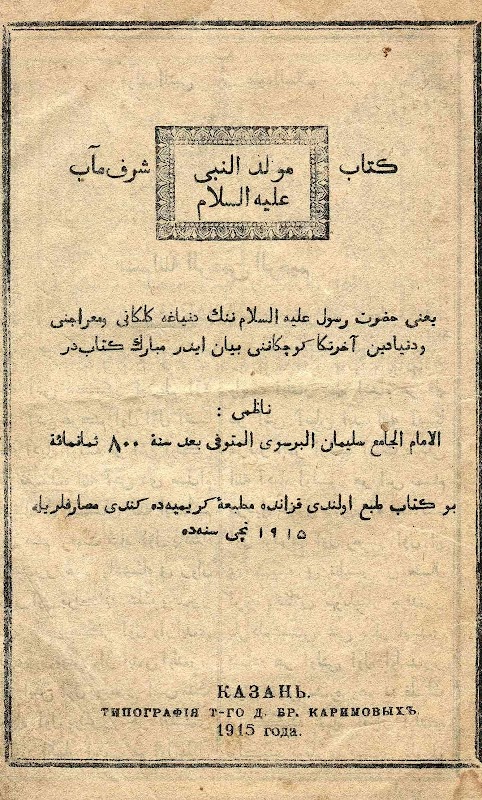 كتاب مولد النبى شرف مآب
عليه السلام
يعنى حضرت رسول عليه السلام ننك دنياغه كلكانى ومعراجنى
ودنيادين آخرتكا كوچكاننى بيان ايدر مبارك كتاب در
ناظمى :
الامام الجامع سليمان البرسوى المتوفى بعد سنة ٨٠٠ ثمانمائة
بو كتاب طبع اولندى قزانده مطبعهٔ كريميه‌ده كندى مصارفلريله
١٩١٥ نچى سنه‌ده
КАЗАНЬ.
ТИПОГРАФІЯ Т-ГО Д. БР. КАРИМОВЫХЪ.
1915 года.